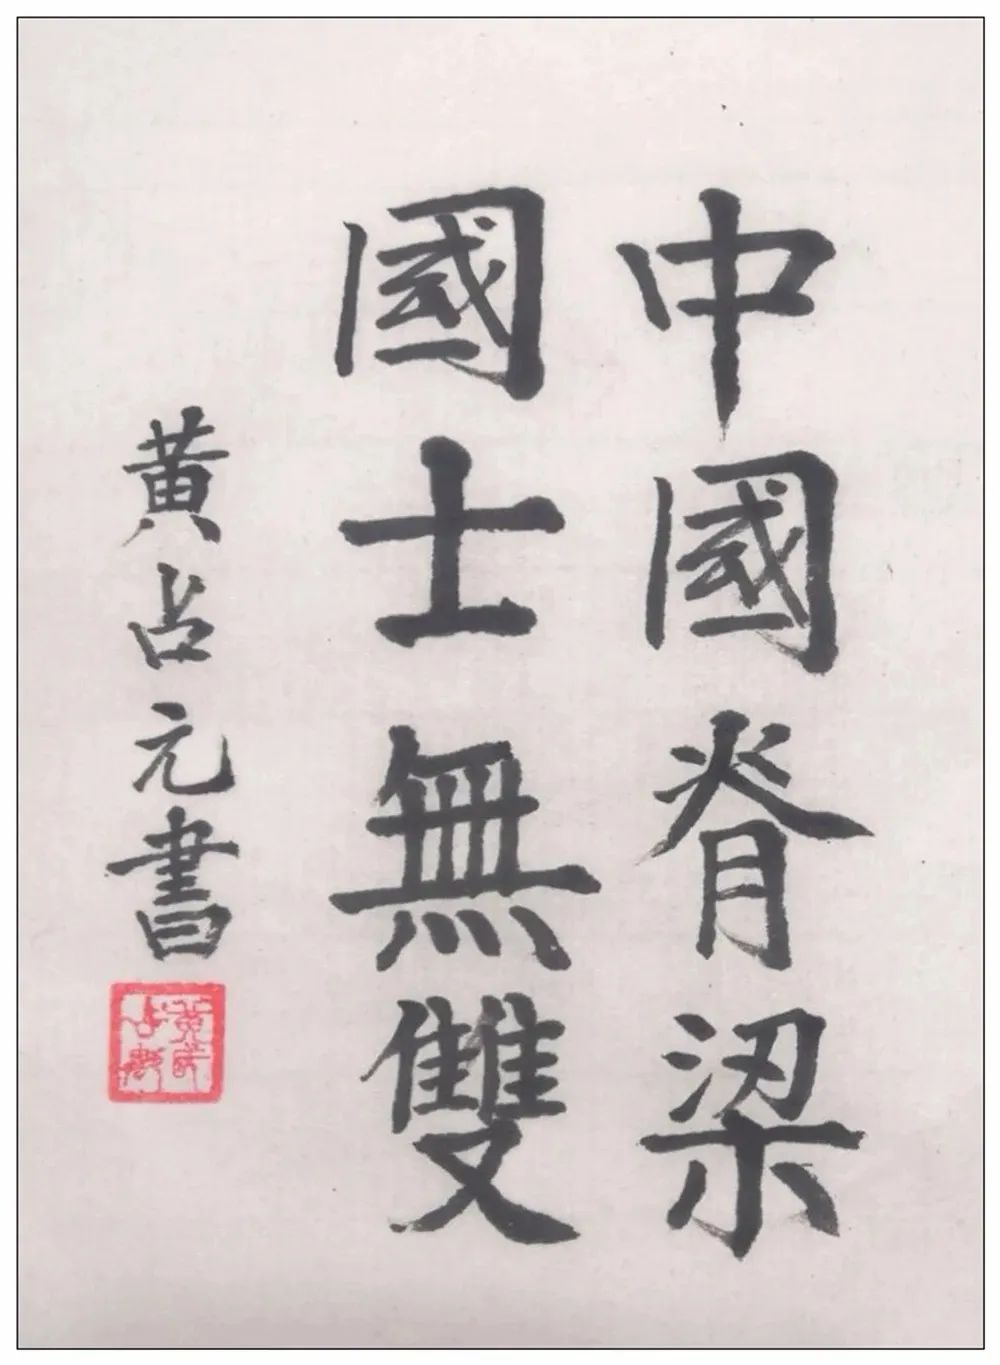 中國脊梁
國士無雙
黄占元書